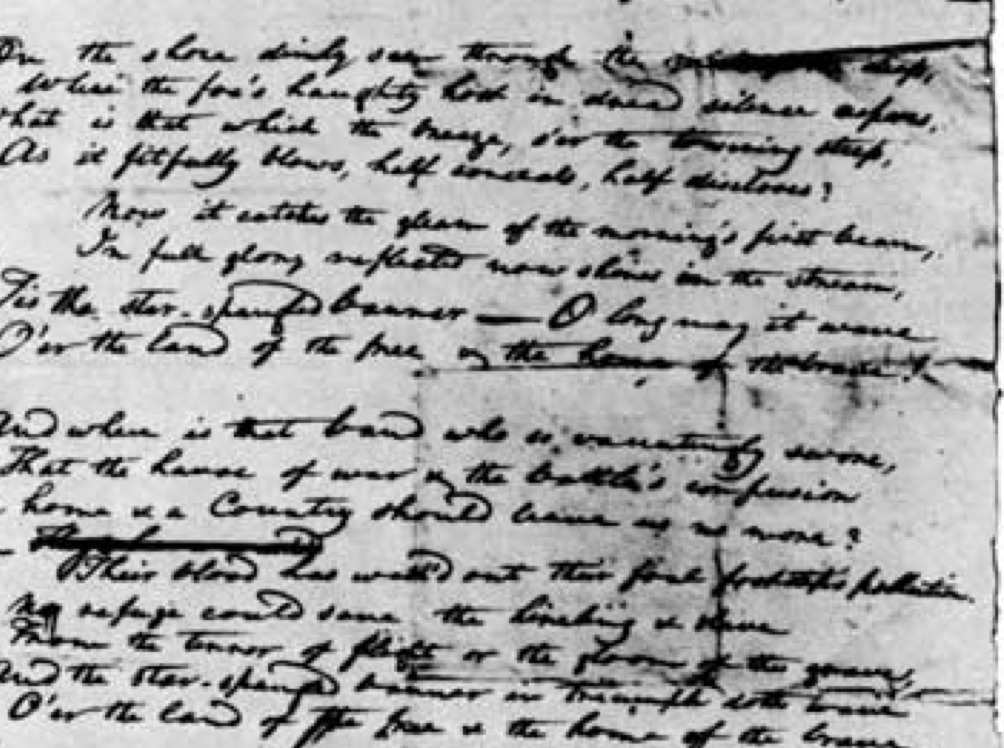 On the shore dimly seen through the deep,
Where the foe's haughty host in dread silence reposes,
What is that which the breeze, o'er the towering steep,
As it fitfully blows, half conceals, half discloses?
Now it catches the gleam of the morning's first beam,
In full glory reflected now shines in the stream,
'Tis the star-spangled banner — O long may it wave
O'er the land of the free & the home of the brave!
And where is that band who so vauntingly swore,
That the havoc of war & the battle's confusion
A home & a Country should leave us no more?
Their blood has wash'd out their foul footstep's pollution.
No refuge could save the hireling & slave
From the terror of flight or the gloom of the grave,
And the star-spangled banner in triumph doth wave
O'er the land of the free & the home of the brave